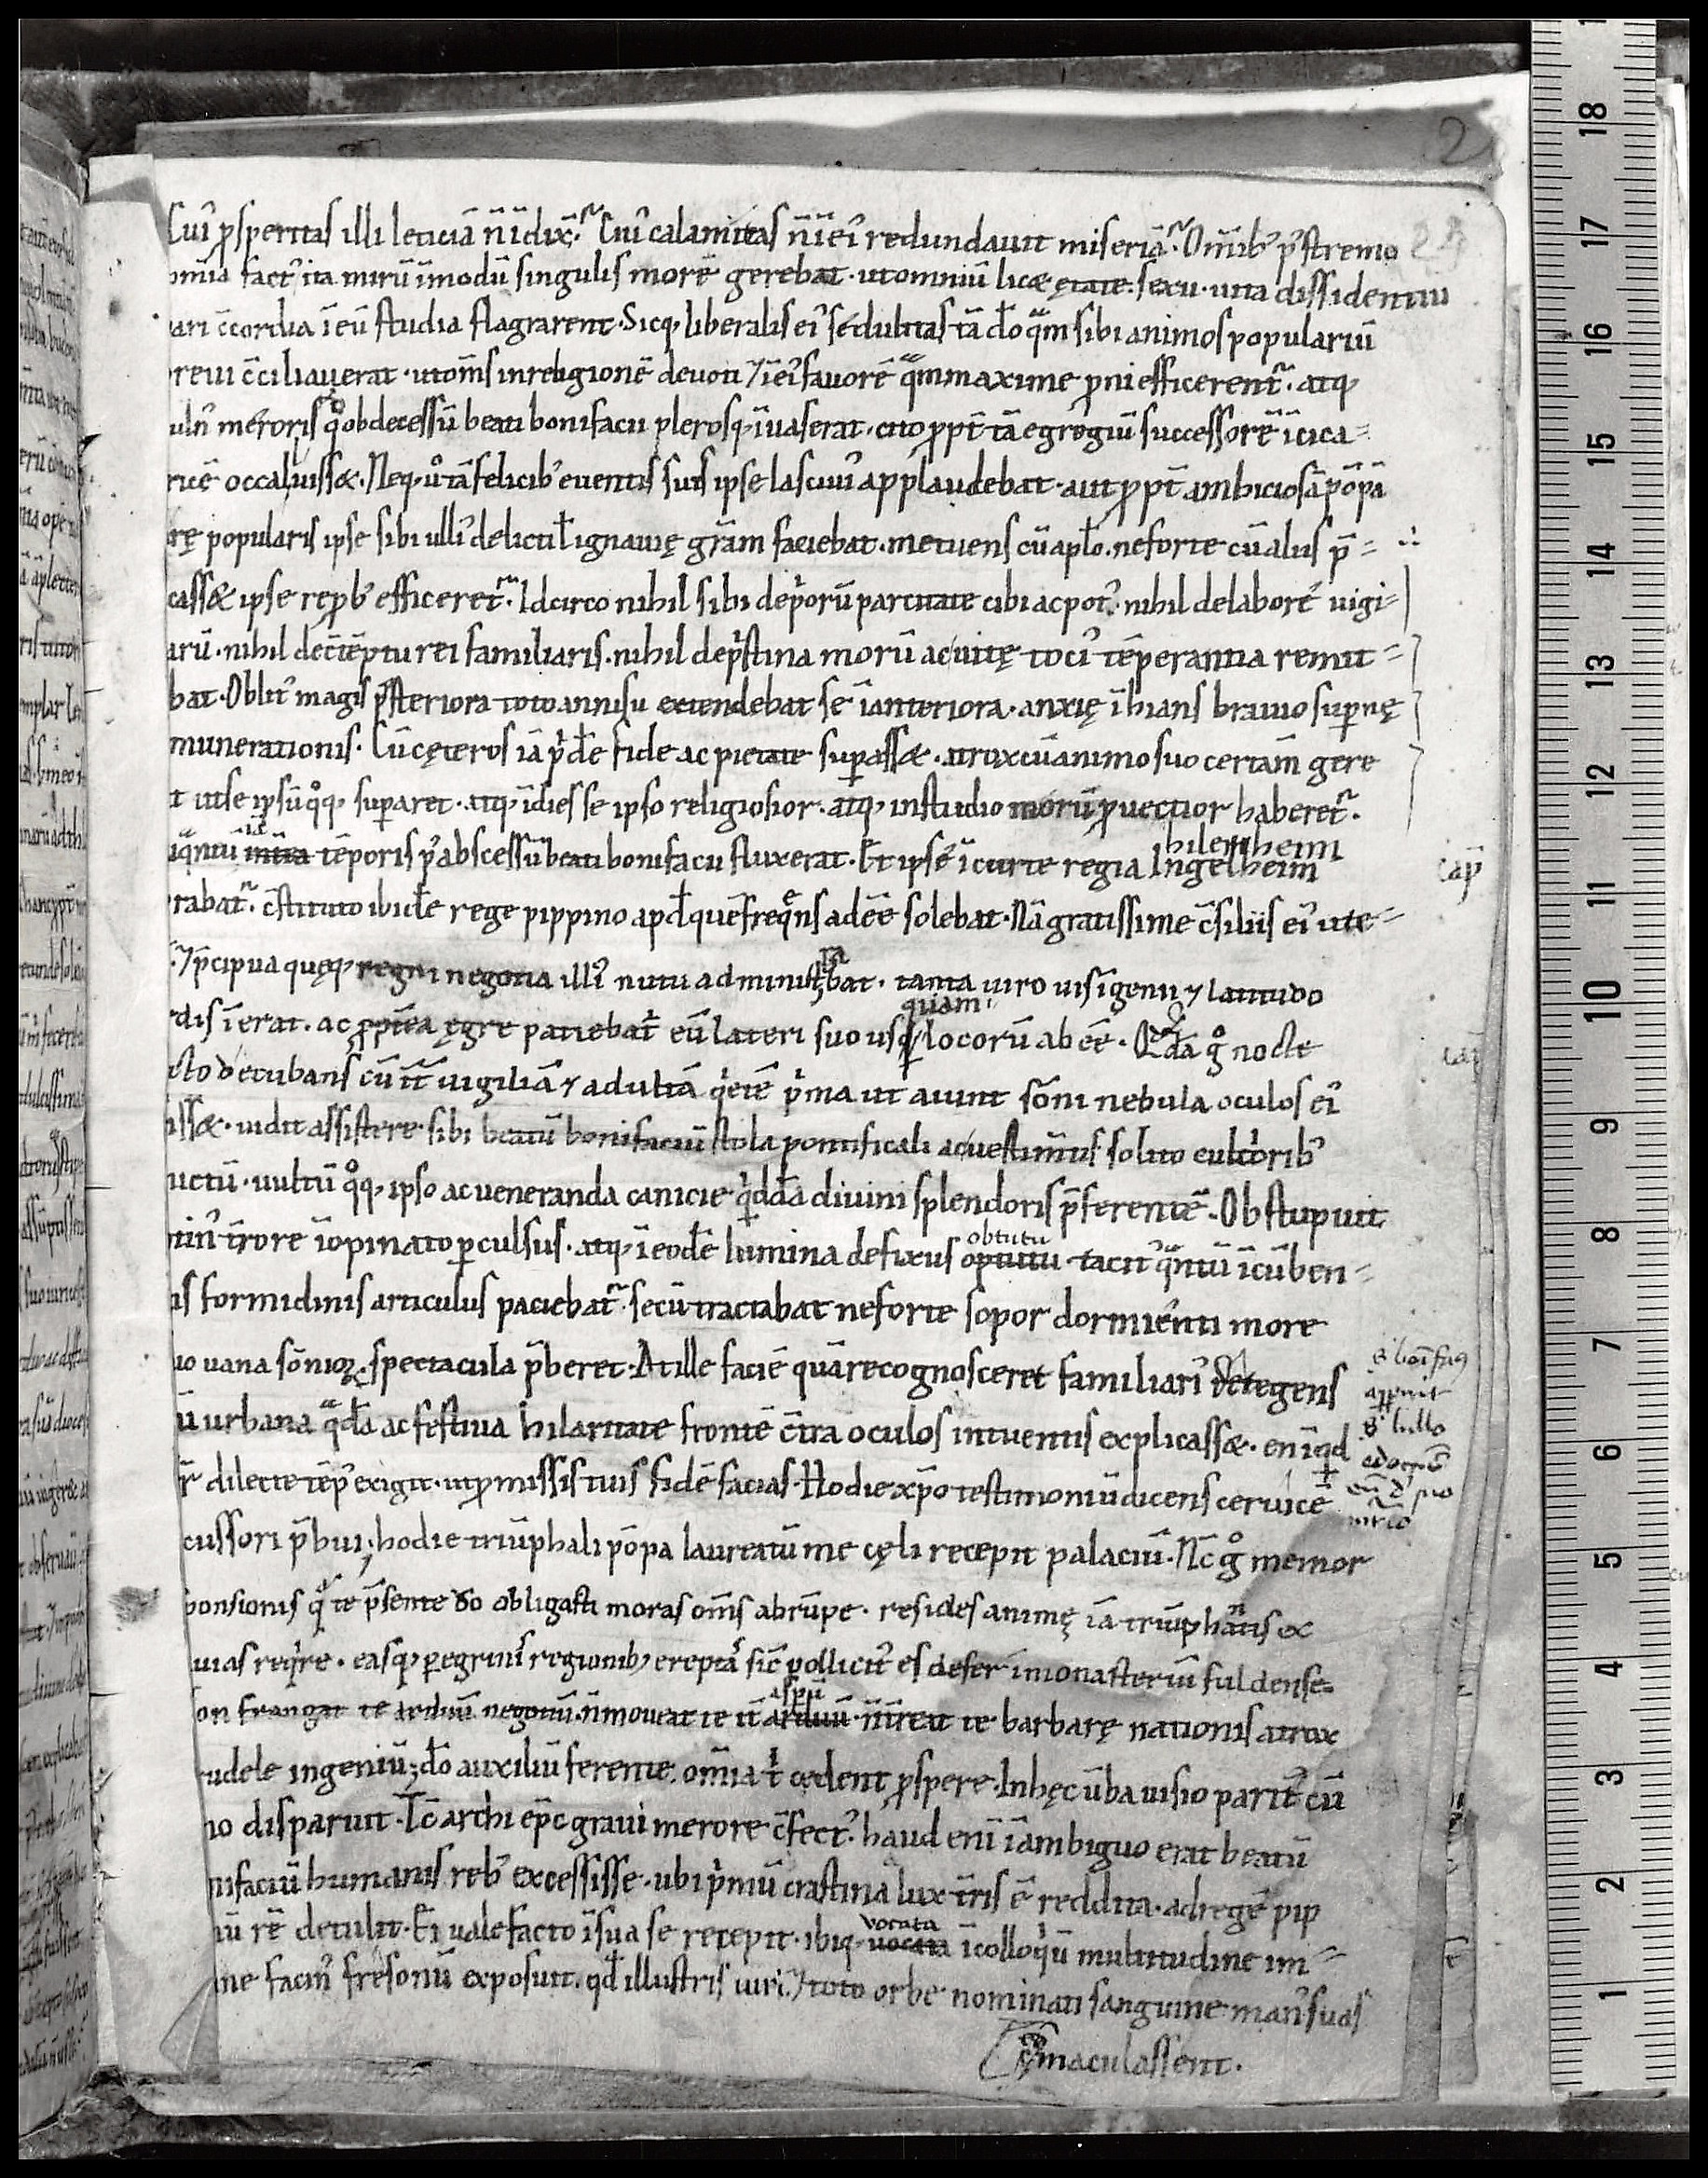 Cui' ꝓsperitas illi leticiā ñ īdix̄. Cui' calamitas ñ ī ei' redundauit miseriā. Om̄ib' p'stremo
omīa fact' ita mirū īmodū singulis morē gerebat. ut omniū lic& ętate. sexu. uita dissidentiū
pari c̄cordia ī eū studia flagrarent. Sicq, liberalis ei' sedulitas tā dō qᵃm sibi animos populariū
breui c̄ciliauerat. ut om̄s in religionē deuoti ⁊ ī ei' fauorē qᵃm maxime ꝓni efficerent̃. atq,
uln' meroris qᵒ ob decessū beati bonifacii plerosq, īuaserat. cito ꝓpt̄ tā egregiū successorē ī cica=
ricē occaluiss&. Neq, ůo tā felicib' euentis suis ipse lasciui' applaudebat. aut ꝓpt̄ ambiciosā pōpā
popularis ipse sibi ulli' delicti ł ignauię grām faciebat. metuens cū apłō. ne forte cū aliis p̄=
cass& ipse reꝓb' efficeret̃. Idcirco nihil sibi de pⁱorū parcitate cibi ac pot'. nihil de laborē uigi=
arū. nihil de c̄tēptu rei familiaris. nihil de pⁱstina morū ac uitę toci' tēperantia remit=
bat. Oblit' magis p'steriora toto annisu extendebat sē ī anteriora. anxię īhians brauio suꝑnę
munerationis. Cū cęteros iā pⁱdē fide ac pietate suꝑass&. atrox cū animo suo certam̄ gere
t ut se ipsū qᵒq, suꝑaret. atq, īdies se ipso religiosior. atq, in studio morū ꝓuectior haberet̃.
iqᵃntū intra tēporis p' abscessū beati bonifacii fluxerat. Et ipse ī curte regia Ingelheim
hilenheim
Cap̄
rabat̃. c̄stituto ibidē rege pippino apd̄ quē freqᵉns adēē solebat. Nā gratissime c̄siliis ei' ute=
⁊ p̄cipua quęq, regni negotia illi' nutu administrabat. tanta uiro uis igenii ⁊ latitudo
quam
rdis īerat. ac ꝓptēa ęgre patiebat̃ eū lateri suo usq̄ locorū abēē. Qᵃdā gᵒ nocte
cto decubans cū īt̄ uigiliā ⁊ adultā qⁱetē pⁱma ut aiunt sōni nebula oculos ei'
iss&. uidit assistere sibi beatū bonifaciū stola pontificali ac uestim̄tis solito cultⁱorib'
uctū. uultū qᵒq, ipso ac ueneranda canicie qⁱddā diuini splendoris p̄ferentē. Obstupuit
obtutu
t̄rore īopinato ꝑculsus. atq, ī eodē lumina defixus optutu tacit' qᵃntū īcūben=
is formidinis articulus paciebat̃. secū tractabat ne forte sopor dormienti more
uo uana sōnioꝝ spectacula p̄beret. At ille faciē quā recognosceret familiari' detegens
ū urbana qᵃdā ac festiua hilaritate frontē c̄tra oculos intuentis explicass&. en īqd
r̄ dilecte tēp' exigit. ut ꝓmissis tuis fidē facias. Hodie xp̄o testimoniū dicens ceruicē
cussori p̄bui; hodie triūphali pōpa laureatū me cęli recepit palaciū. Nc̄ gᵒ memor
ponsionis qᵃ te p̄sente dō obligasti moras om̄s abrūpe. resides animę iā triūphantis ex
uias reqⁱre. easq, peregrinis regionib, ereptas sic̄ pollicit' es defer in monasteriū fuldense
aspū
on frangat te arduū negotiū. ñ moueat te it̄ arduū. ñ t̄reat te barbarę nationis atrox
rudele ingeniū; dō auxiliū ferente. om̄ia t' cedent ꝓspere. In hęc ūba uisio parit̄ cū
no disparuit. Tc̄ archi epc̄ graui merore c̄fect'. haud eni' ī ambiguo erat beatū
nifaciū humanis reb' excessisse. ubi pⁱmū crastina lux t̄ris ē reddita. ad regē pip
vocata
iū rē detulit. Ei uale facto ī sua se recepit. ibiq, uocata ī colloqⁱū multitudine im=
ne facin' fresonū exposuit. qd̄ illustris uiri. ⁊ toto orbe nominati sanguine man' suas
maculassent.